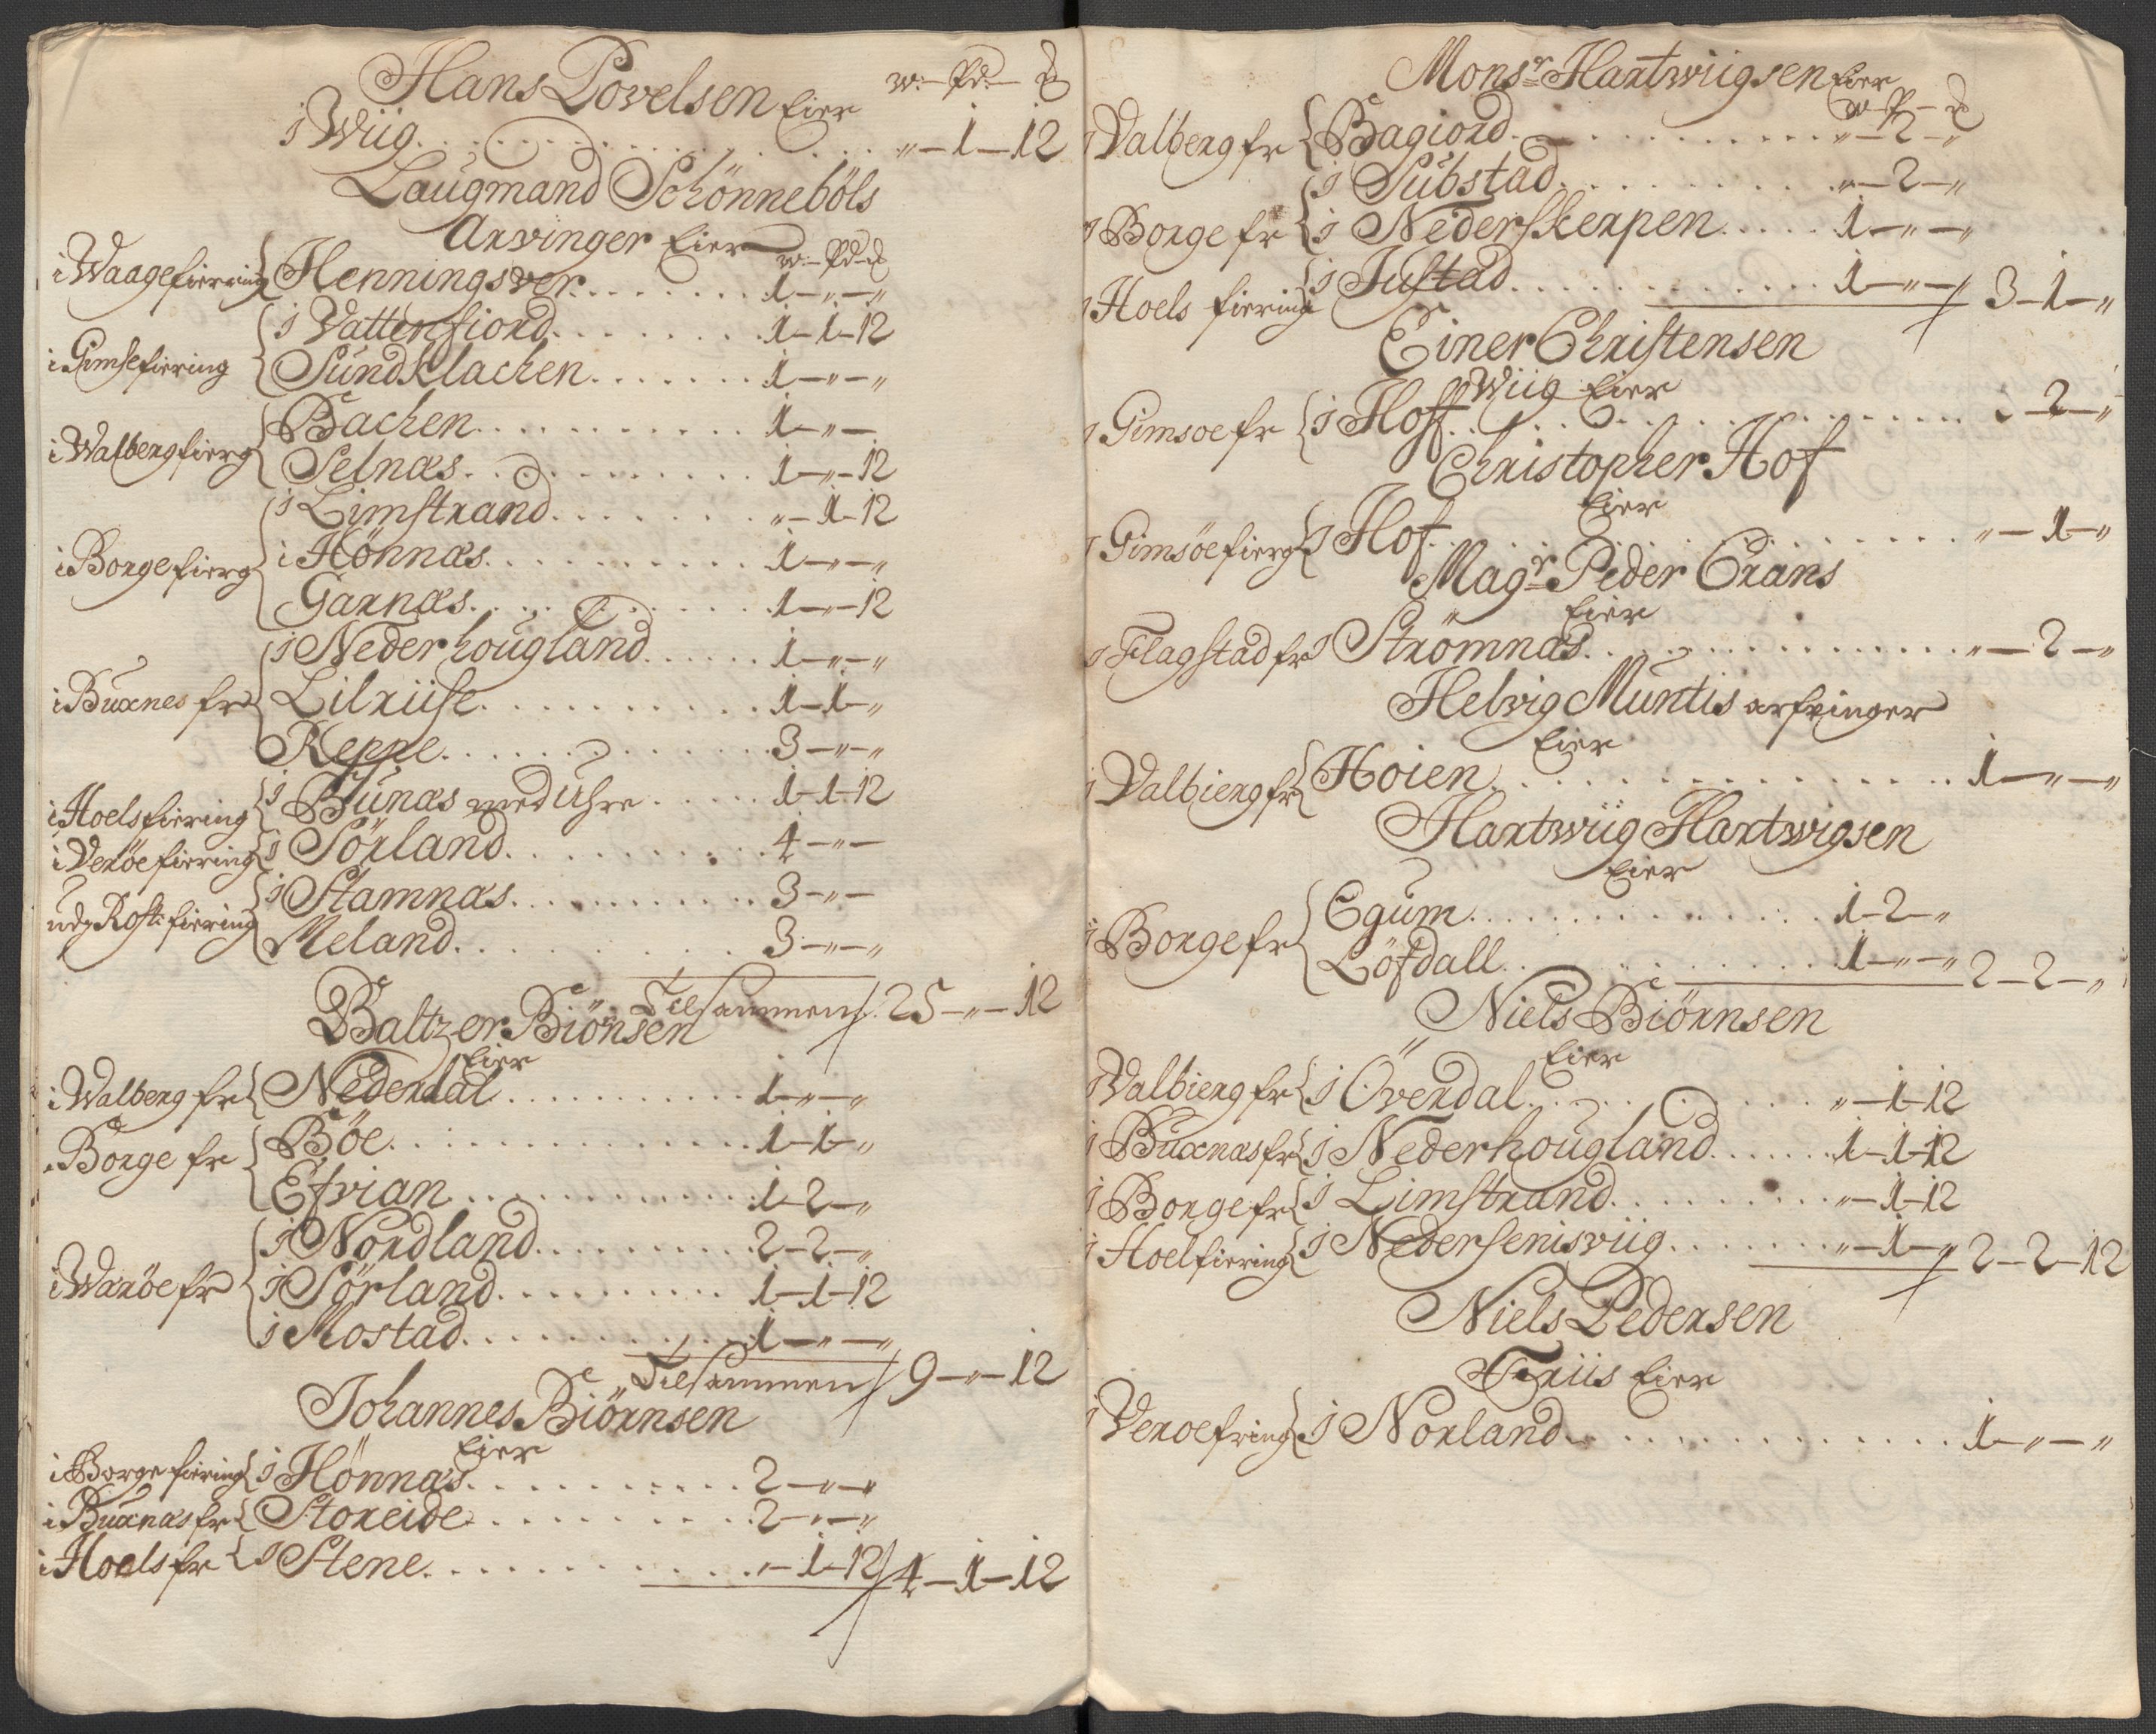 Hans Povelsen Eier w:– Pd:– ℔
i Wiig . . . . . . . . . . „– 1 – 12
Laugmand Schönneböls
Arvinger Eier w:– Pd– ℔
i Waagefierring { Henningsver . . . . . . . 1 – „ – „
i Gimsefiering { i Vattenfiord . . . . . . . 1 – 1 – 12
Sundklachen . . . . . . . 1 – „ – „
i Walbergfierg { Bachen . . . . . . . 1 – „ –
Selnæs . . . . . . . 1 – „ – 12
i Borgefierg { i Limstrand . . . . . . . „ – 1 – 12
i Hönnæs . . . . . . . 1 – „ – „
Garnæs . . . . . . . 1 – „ – 12
i Buxnes fr { i Nederhougland . . . . . . 1 – „ – „
Lilriise . . . . . . . 1 – 1 – „
Reppe . . . . . . . 3 – „ – „
i Hoelsfiering { i Bunæs med Uhre . . . . . 1 – 1 – 12
i Veröefiering { i Sörland . . . . . . . 4 – „ –
udj Rostfiering { i Stamnæs . . . . . . . 3 – „ –
Meland . . . . . . . 3 – „ – „
Tilsammen / 25 – „ – 12
Baltzer Biönsen
Eier
i Walberg fr { Nederdal . . . . . . . 1 – „ – „
i Borge fr { Böe . . . . . . . 1 – 1 – „
Efvian . . . . . . . 1 – 2 – „
i Waröe fr { i Nordland . . . . . . . 2 – 2 – „
i Sörland . . . . . . . 1 – 1 – 12
i Mostad . . . . . . . 1 – „ – „
Tilsammen / 9 – „ – 12
Johannes Biörnsen
Eier
i Borge fiering { i Hönnæs . . . . . . . 2 – „ – „
i Buxnæs fr { Storeide . . . . . . . 2 – „ – „
i Hoels fr { i Stene . . . . . . . „ – 1 – 12 / 4 – 1 – 12
Monsr Hartwiigsen Eier
w – P – ℔
i Valberg fr { Bagiord . . . . . . . „ – 2 – „
i Borge fr { i Substad . . . . . . . „ – 2 – „
i Nederskerpen . . . . . 1 – „ – „
i Hoels fiering { i Justad . . . . . . . 1 – „ – „ / 3 – 1 – „
Einer Christensen
Wiig Eier
i Gimsoe fr { i Hoff . . . . . . . „ – 2 – „
Christopher Hof
Eier
i Gimsöefierg { i Hof . . . . . . . „ – 1 – „
Magr Peder Crans
Eier
i Flagstad fr i Strömnæs . . . . . . . „ – 2 – „
Helvig Muntis arfvinger
Eier
i Valbierg fr { Hoien . . . . . . . 1 – „ – „
Hartwiig Hartwigsen
Eier
i Borge fr { Egum . . . . . . . 1 – 2 – „
Löfdall . . . . . . . 1 – „ – „ 2 – 2 – „
Niels Biörnsen
Eier
i Valbierg fr { i Överdal . . . . . . . „ – 1 – 12
i Buxnæs fr { i Nederhougland . . . . . . 1 – 1 – 12
i Borge fr { i Limstrand . . . . . . . „ – 1 – 12
i Hoelfiering { i Nedersenisviig . . . . . . „ – 1 – „ / 2 – 2 – 12
Niels Pedersen
Friis Eier
i Veroefring { i Norland . . . . . . . 1 – „ – „